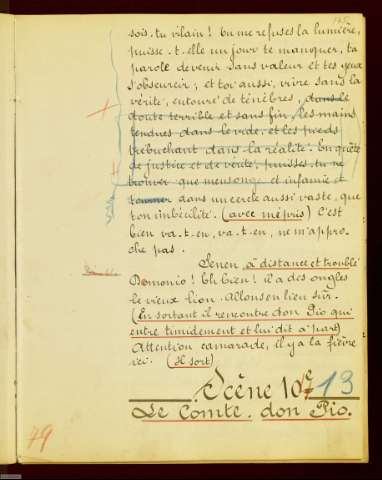 sois, tu vilain! Tu me refuses la lumière,
puisse-t-elle un jour te manquer, ta
parole devenir sans valeur et tes yeux
s'obscurcir; et toi aussi, vivre sans la
vérité, entouré de ténèbres, dans le
doute terrible et sans fin, les mains
tendues dans le vide, et les pieds
trébuchant dans la réalité. En quête
de justice et de vérité, puisses-tu ne
trouver que mensonge et infamie et
tourner dans un cercle aussi vaste, que
ton imbécilité. (avec mépris) C'est
bien va-t-en, va-t-en, ne m'appro-
che pas.
à distance et troublé
Demonio! Eh bien! il a des ongles
le vieux lion. Allons en lieu sûr.
(En sortant il rencontre don Pio qui
entre timidement et lui dit à part)
Attention camarade, il y a la fièvre
ici. (Il sort)
Scène 13
Le Comte. don Pio.
49